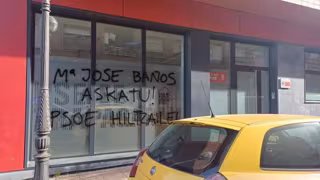 Mª JOSE BAÑOS
ASKATU!
PSOE HILTZAILE!